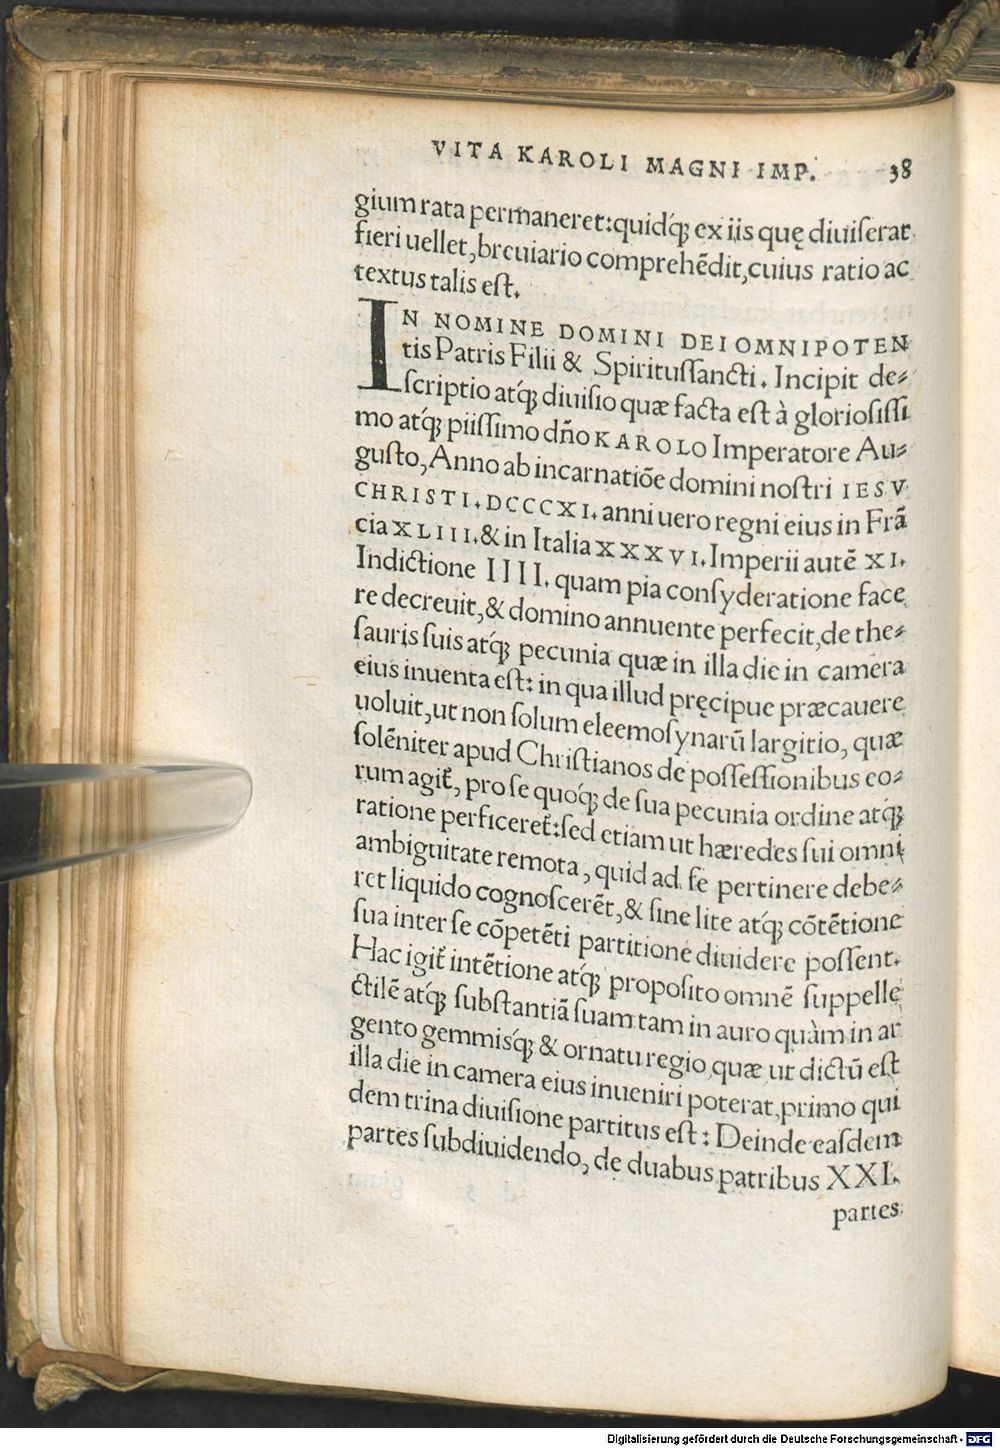 VITA KAROLI MAGNI IMP. 38
gium rata permaneret:quidq́ꝫ ex iis quę diuiſerat
fieri uellet,breuiario comprehēdit,cuius ratio ac
textus talis eſt.
IN NOMINE DOMINI DEI OMNIPOTEN
tis Patris Filii & Spirituſſancti. Incipit de⸗
ſcriptio atq́ꝫ diuiſio quæ facta eſt à glorioſiſſi
mo atq́ꝫ piiſſimo dño KAROLO Imperatore Au⸗
guſto, Anno ab incarnatiōe domini noſtri IESV
CHRISTI. DCCCXI. anni uero regni eius in Frā
cia XLIII. & in Italia XXXVI. Imperii autē XI.
Indictione IIII. quam pia conſyderatione face
re decreuit,& domino annuente perfecit,de the⸗
ſauris ſuis atq́ꝫ pecunia quæ in illa die in camera
eius inuenta eſt: in qua illud pręcipue præcauere
uoluit,ut non ſolum eleemoſynarū largitio, quæ
ſolēniter apud Chriſtianos de poſſeſſionibus eo⸗
rum agit̃, pro ſe quoq́ꝫ de ſua pecunia ordine atq́ꝫ
ratione perficeret̃:ſed etiam ut hæredes ſui omni
ambiguitate remota, quid ad ſe pertinere debe⸗
ret liquido cognoſcerēt,& ſine lite atq́ꝫ cōtētione
ſua inter ſe cōpetēti partitione diuidere poſſent.
Hac igit̃ intētione atq́ꝫ propoſito omnē ſuppelle
ctilē atq́ꝫ ſubſtantiā ſuam tam in auro quàm in ar
gento gemmisq́ꝫ & ornatu regio quæ ut dictū eſt
illa die in camera eius inueniri poterat,primo qui
dem trina diuiſione partitus eſt: Deinde eaſdem
partes ſubdiuidendo, de duabus patribus XXI.
partes
Digitalisierung gefördert durch die Deutsche Forschungsgemeinschaft - DFG